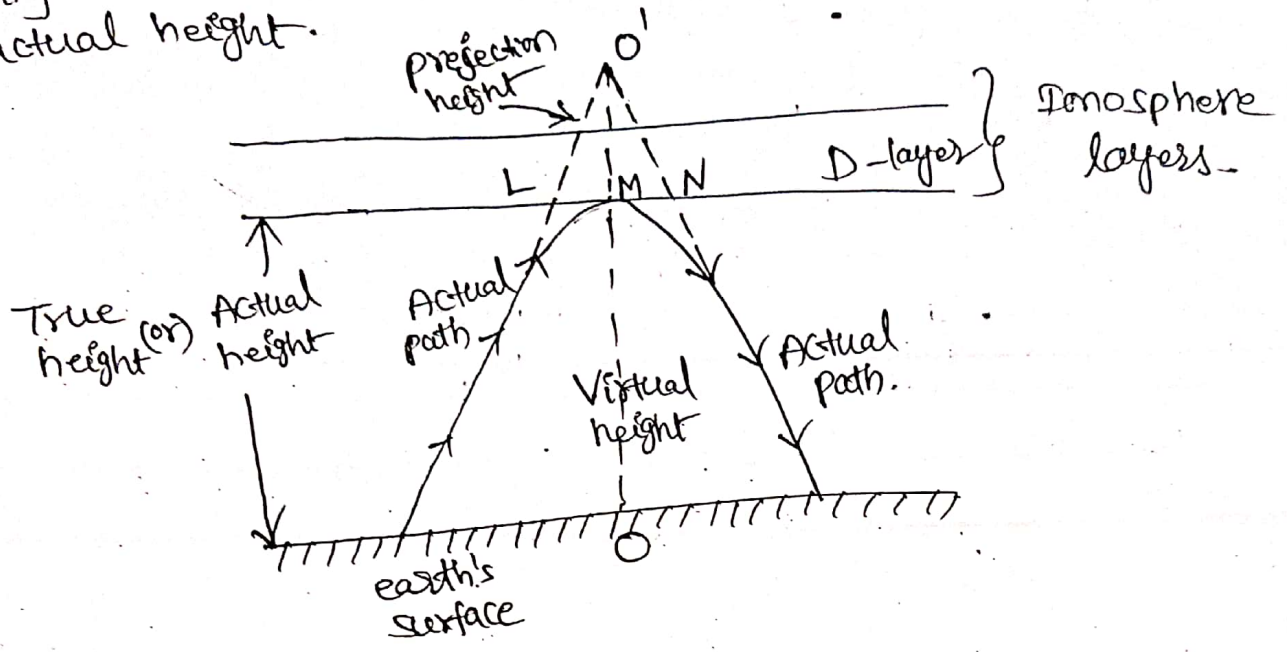 actual height.
projection
height
O'
Ionosphere
layers.
D-layer
L
M
N
True
height
(or)
Actual
height
Actual
path
Virtual
height
Actual
path.
O
earth's
surface